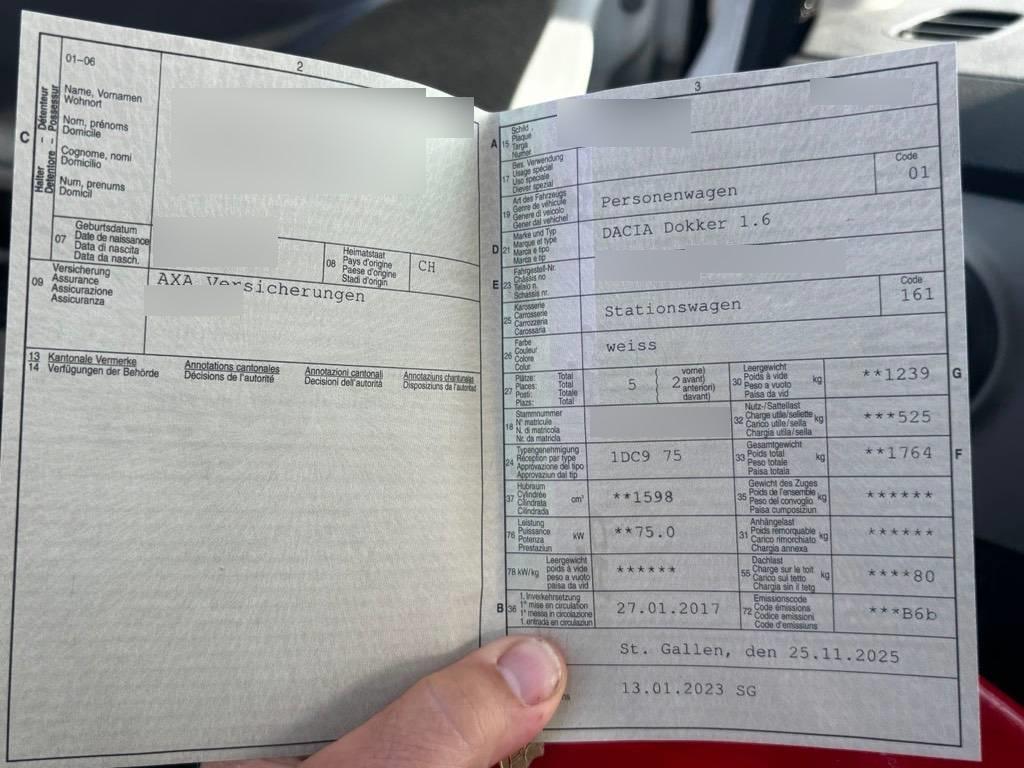 2
01-06
Name, Vornamen
Wohnort
Nom, prénoms
Domicile
Cognome, nomi
Domicilio
Num, prenums
Domicil
C
Halter – Détenteur
Detentore – Possessur
07
Geburtsdatum
Date de naissance
Data di nascita
Data da nasch.
08
Heimatstaat
Pays d'origine
Paese d'origine
Stadi d'origin
CH
09
Versicherung
Assurance
Assicurazione
Assicuranza
AXA Versicherungen
13
14
Kantonale Vermerke
Verfügungen der Behörde
Annotations cantonales
Décisions de l'autorité
Annotazioni cantonali
Decisioni dell'autorità
Annotaziuns chantunalas
Disposiziuns da l'autoritad
3
A
15
Schild
Plaque
Targa
Numer
17
Bes. Verwendung
Usage spécial
Uso speciale
Diever spezial
19
Art des Fahrzeugs
Genre de véhicule
Genere di veicolo
Gener dal vehichel
Personenwagen
Code
01
D
21
Marke und Typ
Marque et type
Marca e tipo
Marca e tip
DACIA Dokker 1.6
E
23
Fahrgestell-Nr.
Châssis no
Telaio n.
Schassis nr.
25
Karosserie
Carrosserie
Carrozzeria
Carossaria
Stationswagen
Code
161
26
Farbe
Couleur
Colore
Colur
weiss
27
Plätze: Total
Places: Total
Posti: Totale
Plazs: Total
5
2
vorne)
avant)
anteriori)
davant)
30
Leergewicht
Poids à vide
Peso a vuoto
Paisa da vid
kg
**1239
G
18
Stammnummer
N° matricule
N. di matricola
Nr. da matricla
32
Nutz-/Sattellast
Charge utile/sellette
Carico utile/sella
Chargia utila/sella
kg
***525
24
Typengenehmigung
Réception par type
Approvazione del tipo
Approvaziun dal tip
1DC9 75
33
Gesamtgewicht
Poids total
Peso totale
Paisa totala
kg
**1764
F
37
Hubraum
Cylindrée
Cilindrata
Cilindrada
cm³
**1598
35
Gewicht des Zuges
Poids de l'ensemble
Peso del convoglio
Paisa cumposiziun
kg
******
76
Leistung
Puissance
Potenza
Prestaziun
kW
**75.0
31
Anhängelast
Poids remorquable
Carico rimorchiato
Chargia annexa
kg
******
78 kW/kg
Leergewicht
poids à vide
peso a vuoto
paisa da vid
******
55
Dachlast
Charge sur le toit
Carico sul tetto
Chargia sin il tetg
kg
****80
B
36
1. Inverkehrsetzung
1re mise en circulation
1a messa in circolazione
1. entrada en circulaziun
27.01.2017
72
Emissionscode
Code émissions
Codice emissioni
Code d'emissiuns
***B6b
St. Gallen, den 25.11.2025
13.01.2023 SG